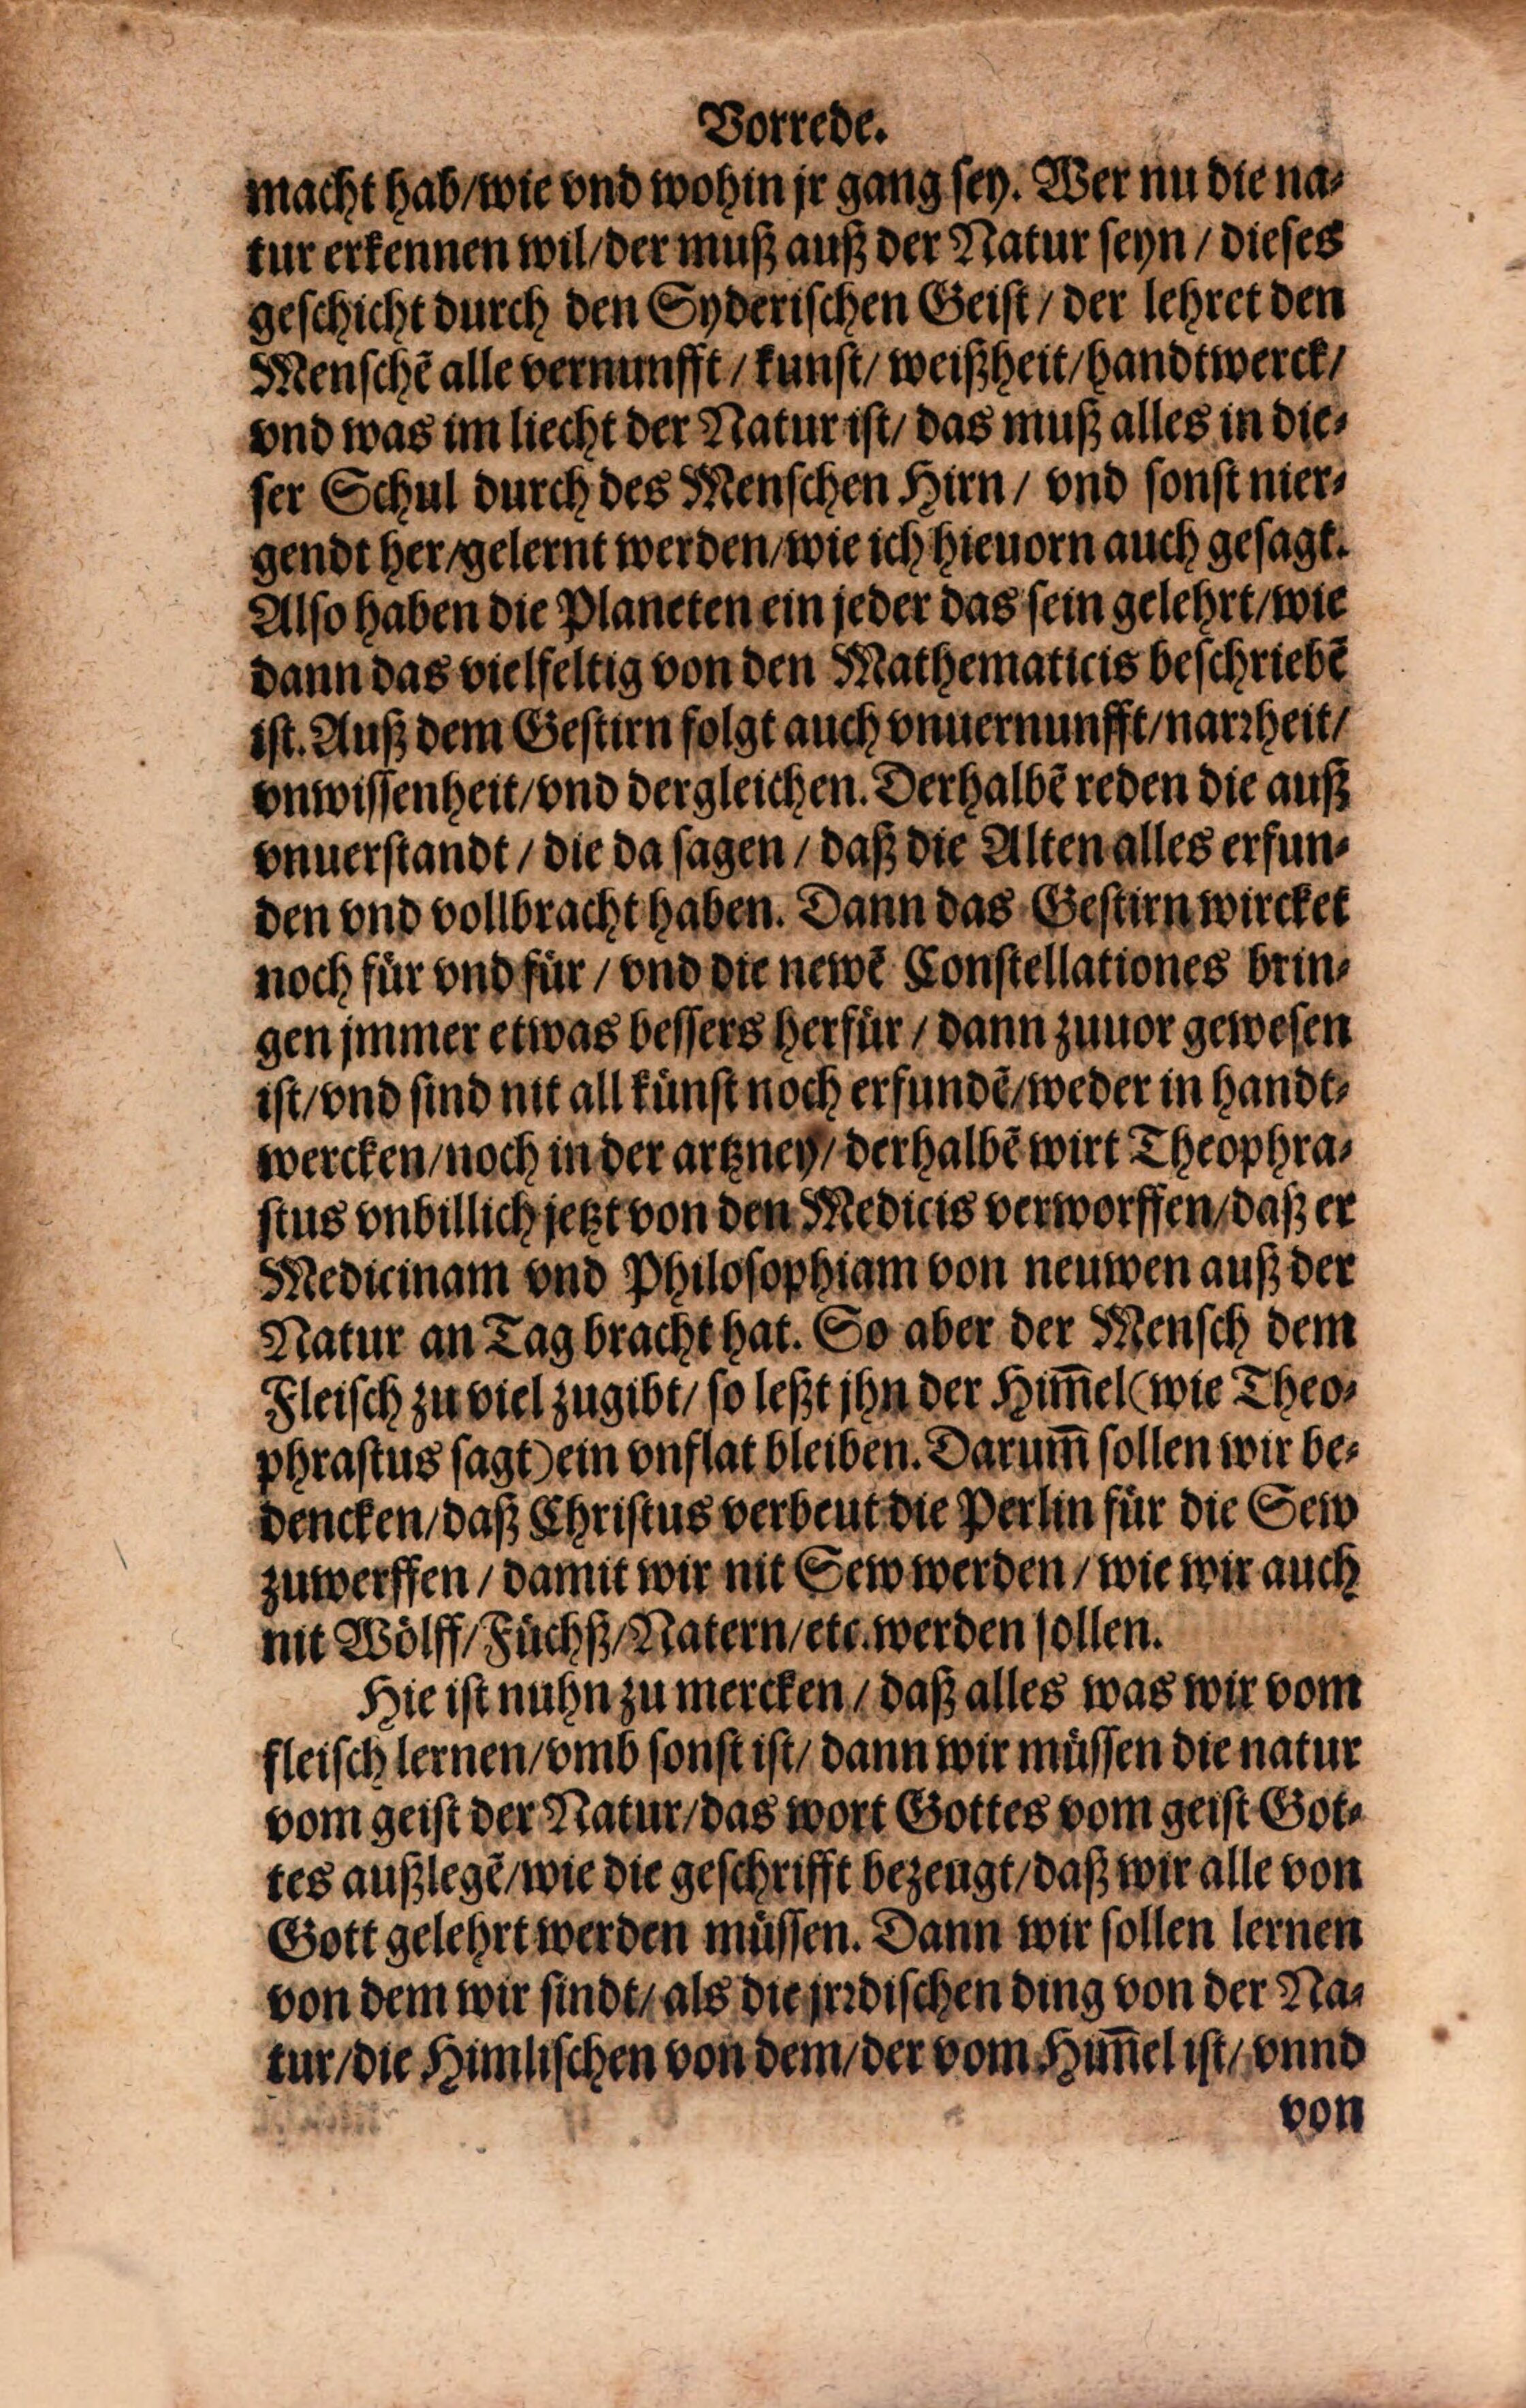 Vorrede.
macht hab/wie vnd wohin jr gang sey. Wer nu die na⸗
tur erkennen wil/der muß auß der Natur seyn / dieses
geschicht durch den Syderischen Geist / der lehret den
Menschẽ alle vernunfft / kunst/ weißheit/handtwerck/
vnd was im liecht der Natur ist/ das muß alles in die⸗
ser Schul durch des Menschen Hirn / vnd sonst nier⸗
gendt her/gelernt werden/wie ich hieuorn auch gesagt.
Also haben die Planeten ein jeder das sein gelehrt/wie
dann das vielfeltig von den Mathematicis beschriebẽ
ist. Auß dem Gestirn folgt auch vnuernunfft/narꝛheit/
vnwissenheit/vnd dergleichen. Derhalbẽ reden die auß
vnuerstandt / die da sagen / daß die Alten alles erfun⸗
den vnd vollbracht haben. Dann das Gestirn wircket
noch für vnd für / vnd die newẽ Constellationes brin⸗
gen jmmer etwas bessers herfür / dann zuuor gewesen
ist/vnd sind nit all künst noch erfundẽ/weder in handt⸗
wercken/noch in der artzney/ derhalbẽ wirt Theophra⸗
stus vnbillich jetzt von den Medicis verworffen/daß er
Medicinam vnd Philosophiam von neuwen auß der
Natur an Tag bracht hat. So aber der Mensch dem
Fleisch zu viel zugibt/ so leßt jhn der Him̃el(wie Theo⸗
phrastus sagt)ein vnflat bleiben. Darum̃ sollen wir be⸗
dencken/daß Christus verbeut die Perlin für die Sew
zuwerffen / damit wir nit Sew werden / wie wir auch
nit Wölff/Füchß/Natern/etc.werden sollen.
Hie ist nuhn zu mercken / daß alles was wir vom
fleisch lernen/vmb sonst ist/ dann wir müssen die natur
vom geist der Natur/das wort Gottes vom geist Got⸗
tes außlegẽ/wie die geschrifft bezeugt/daß wir alle von
Gott gelehrt werden müssen. Dann wir sollen lernen
von dem wir sindt/ als die jrꝛdischen ding von der Na⸗
tur/die Himlischen von dem/der vom Him̃el ist/ vnnd
von